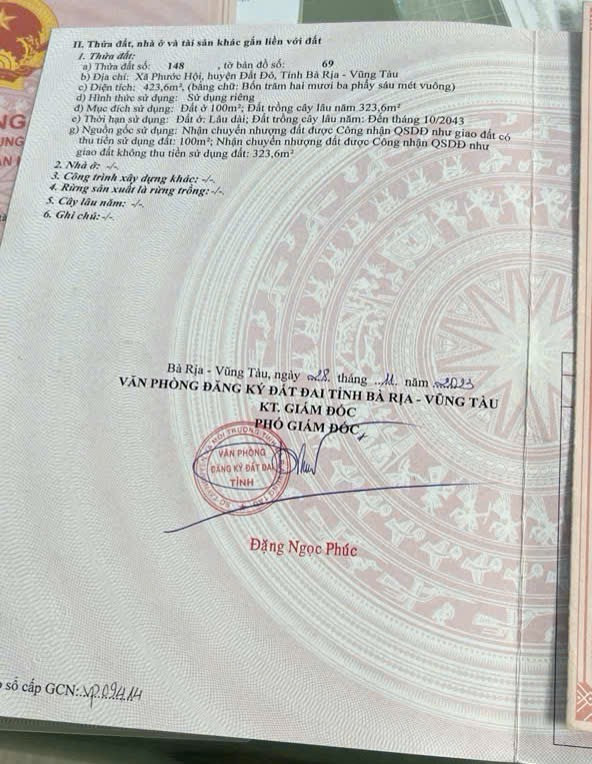 II. Thửa đất, nhà ở và tài sản khác gắn liền với đất
1. Thửa đất:
a) Thửa đất số: 148 , tờ bản đồ số: 69
b) Địa chỉ: Xã Phước Hội, huyện Đất Đỏ, Tỉnh Bà Rịa - Vũng Tàu
c) Diện tích: 423,6m², (bằng chữ: Bốn trăm hai mươi ba phẩy sáu mét vuông)
d) Hình thức sử dụng: Sử dụng riêng
đ) Mục đích sử dụng: Đất ở 100m²; Đất trồng cây lâu năm 323,6m²
e) Thời hạn sử dụng: Đất ở: Lâu dài; Đất trồng cây lâu năm: Đến tháng 10/2043
g) Nguồn gốc sử dụng: Nhận chuyển nhượng đất được Công nhận QSDĐ như giao đất có
thu tiền sử dụng đất: 100m²; Nhận chuyển nhượng đất được Công nhận QSDĐ như
giao đất không thu tiền sử dụng đất: 323,6m²
2. Nhà ở: -/-.
3. Công trình xây dựng khác: -/-.
4. Rừng sản xuất là rừng trồng: -/-.
5. Cây lâu năm: -/-.
6. Ghi chú: -/-.
Bà Rịa - Vũng Tàu, ngày 28 tháng 11 năm 2023
VĂN PHÒNG ĐĂNG KÝ ĐẤT ĐAI TỈNH BÀ RỊA - VŨNG TÀU
KT. GIÁM ĐỐC
PHÓ GIÁM ĐỐC
VĂN PHÒNG
ĐĂNG KÝ ĐẤT ĐAI
TỈNH
Đặng Ngọc Phúc
số cấp GCN: VP.09414